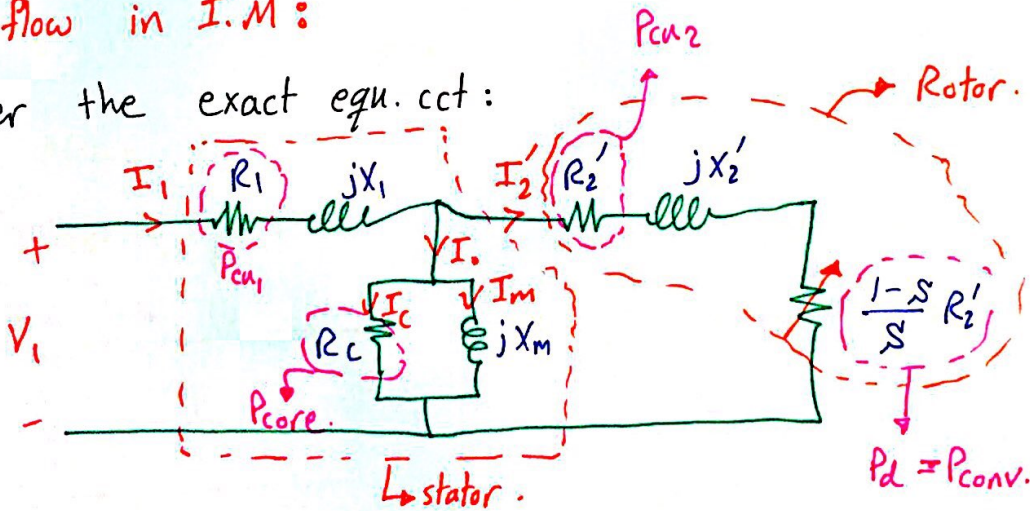 flow in I.M :
the exact equ. cct :
Pcu2
Rotor.
I1 R1 jX1 I2' R2' jX2'
+
Pcu1
I.
Ic Im
V1
Rc jXm
1-S/S R2'
Pcore.
-
stator.
Pd = Pconv.